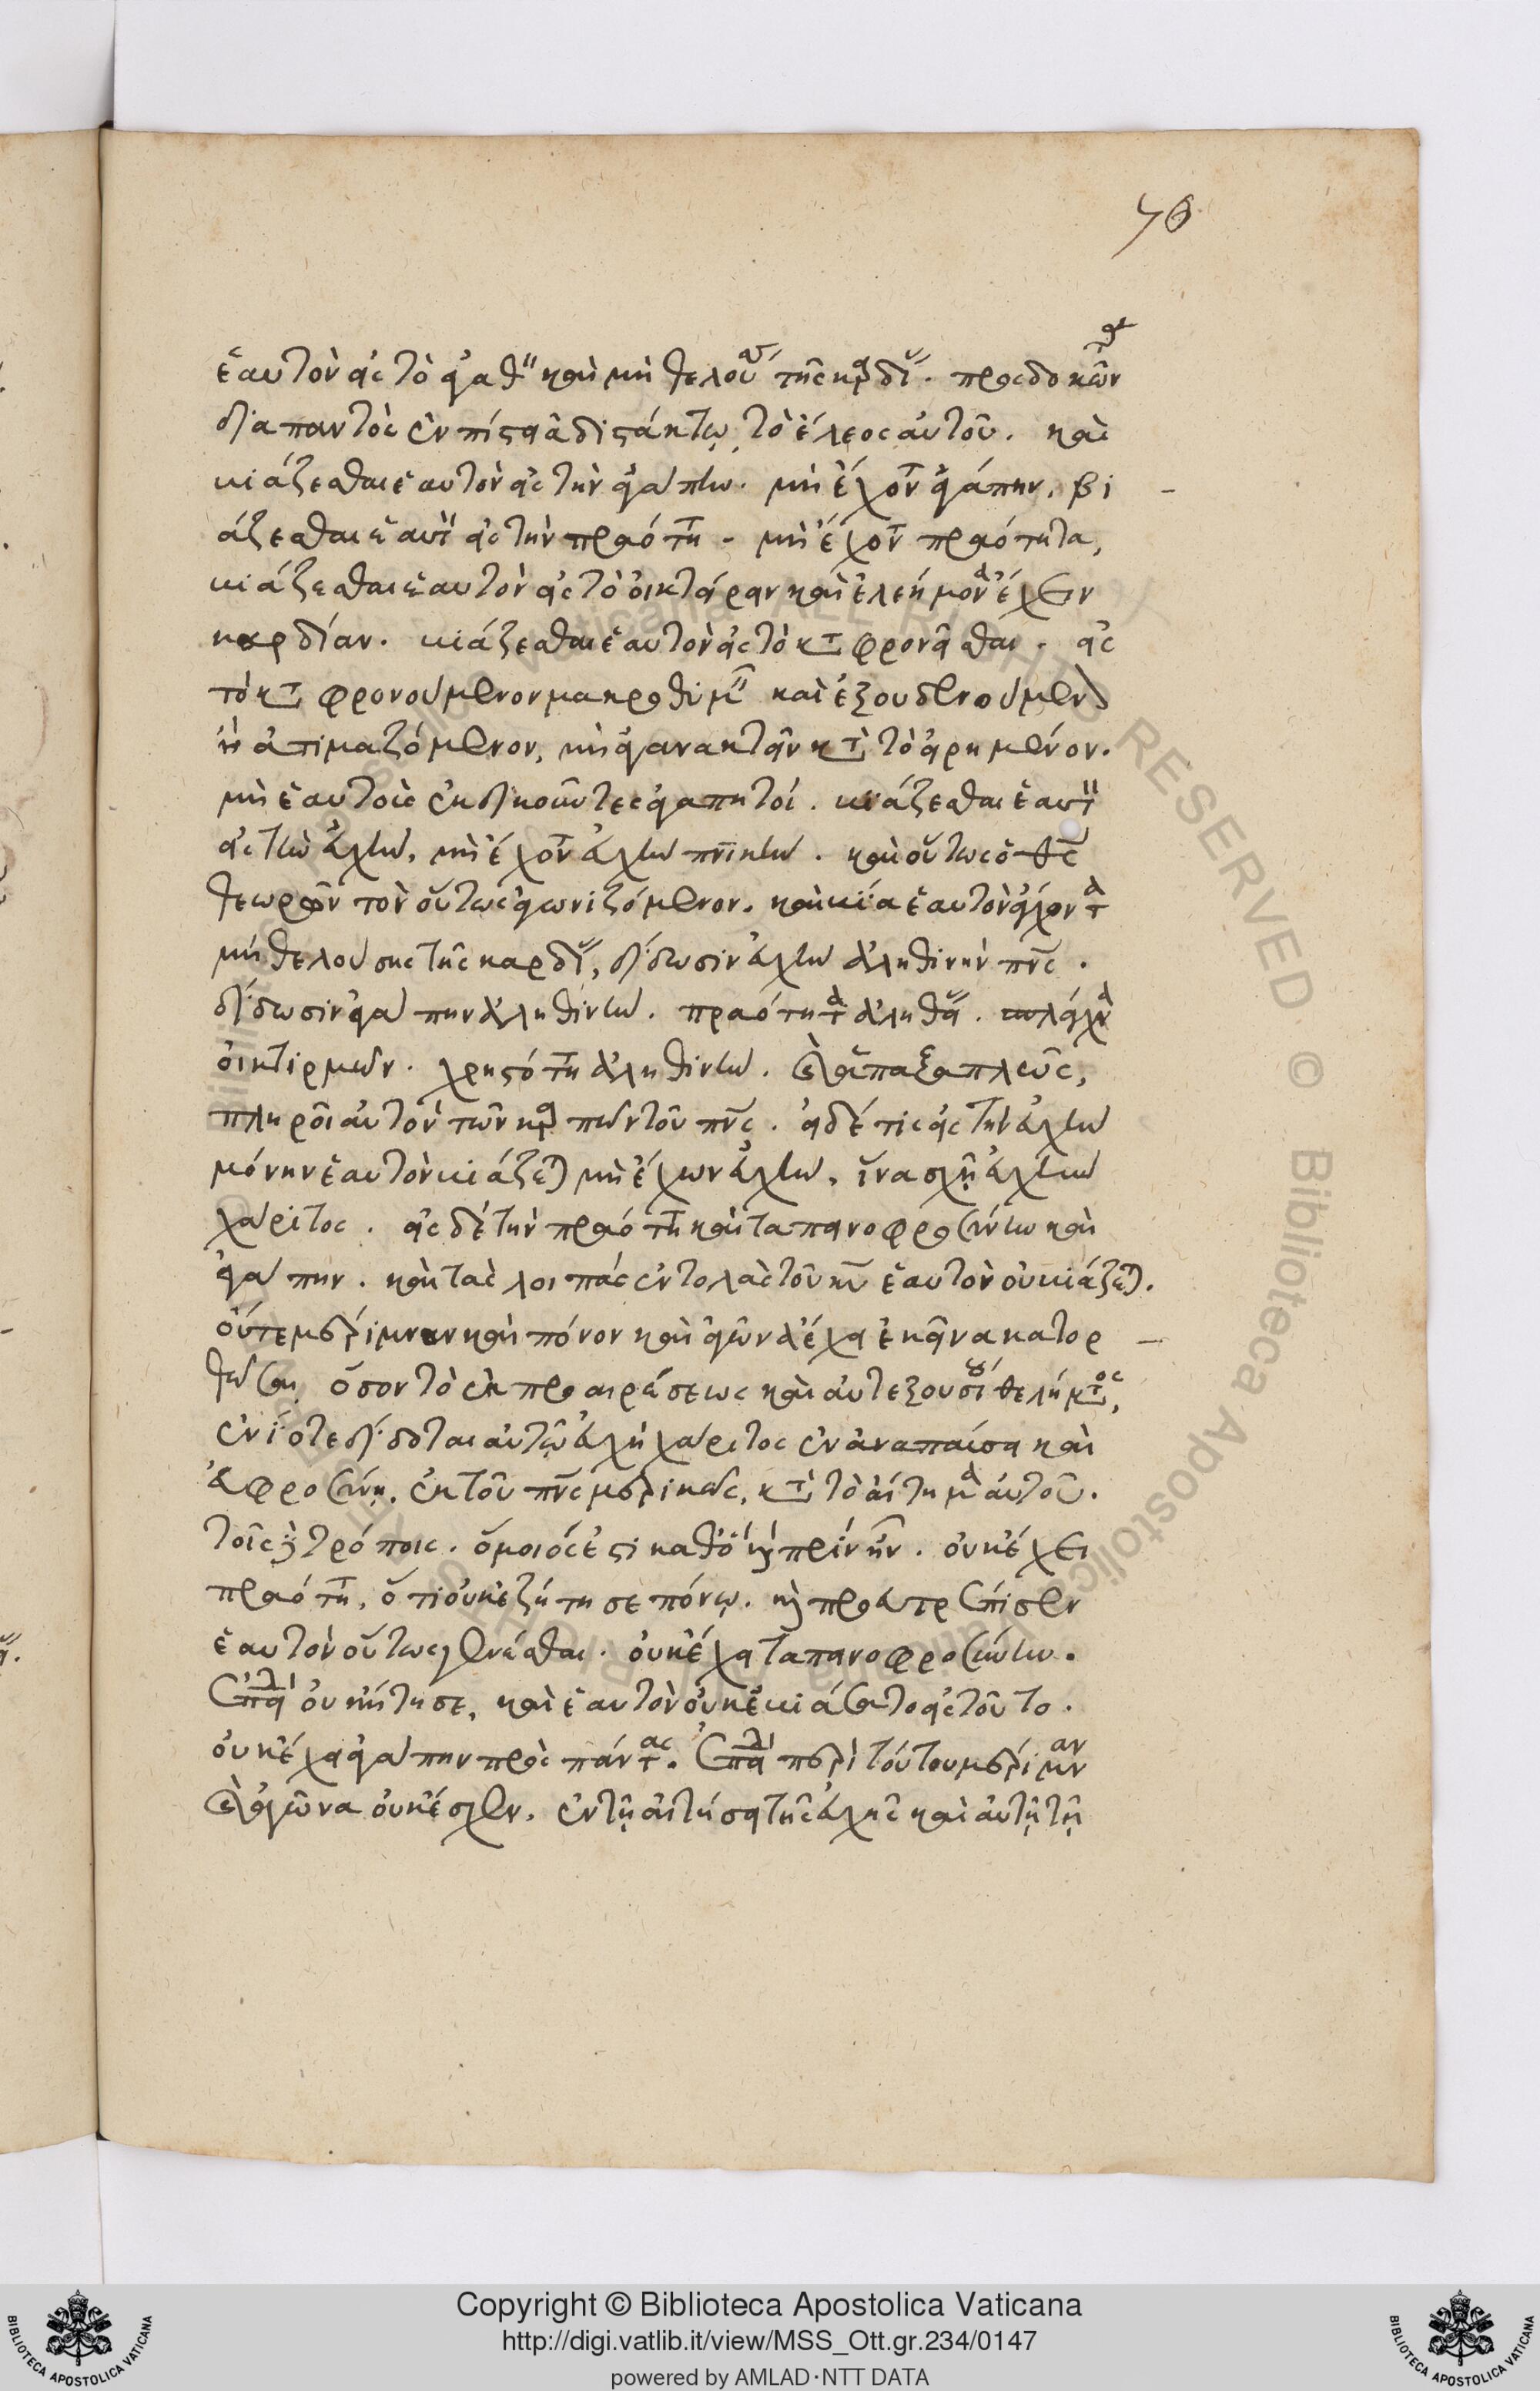 70
ἑαυτὸν εἰς τὸ ἀγαθὸν καὶ μὴ θελούσης τῆς καρδίας. προσδοκῶν
διαπαντὸς ἐν πίστει ἀδιστάκτῳ τὸ ἔλεος αὐτοῦ. καὶ
βιάζεσθαι ἑαυτὸν εἰς τὴν ἀγάπην. μὴ ἔχοντα ἀγάπην. βι
άζεσθαι ἑαυτὸν εἰς τὴν πραότητα. μὴ ἔχοντα πραότητα,
βιάζεσθαι ἑαυτὸν εἰς τὸ οἰκτείρειν καὶ ἐλεήμονα ἔχειν
καρδίαν. βιάζεσθαι ἑαυτὸν εἰς τὸ καταφρονεῖσθαι. εἰς
τὸ καταφρονούμενον μακροθυμεῖν καὶ ἐξουδενούμενον
ἢ ἀτιμαζόμενον, μὴ ἀγανακτεῖν κατὰ τὸ εἰρημένον.
μὴ ἑαυτοὺς ἐκδικοῦντες ἀγαπητοί. βιάζεσθαι ἑαυτὸν
εἰς τὴν εὐχὴν, μὴ ἔχοντα εὐχὴν πνικὴν. καὶ οὕτως ὁ θς
θεωρῶν τὸν οὕτως ἀγωνιζόμενον. καὶ βίᾳ ἑαυτὸν ἄγχοντα
μὴ θελούσης τῆς καρδίας, δίδωσιν εὐχὴν ἀληθινὴν πνς.
δίδωσιν ἀγάπην ἀληθινὴν. πραότητα ἀληθῆ. σπλάγχνα
οἰκτιρμῶν. χρηστότητα ἀληθινὴν. καὶ ἁπαξαπλῶς,
πληροῖ αὐτὸν τῶν καρπῶν τοῦ πνς. εἰ δέ τις εἰς τὴν εὐχὴν
μόνην ἑαυτὸν βιάζεται μὴ ἔχων εὐχὴν, ἵνα σχῇ εὐχὴν
χάριτος. εἰς δὲ τὴν πραότητα καὶ ταπεινοφροσύνην καὶ
ἀγάπην. καὶ τὰς λοιπὰς ἐντολὰς τοῦ κυ ἑαυτὸν οὐ βιάζεται.
οὔτε μέριμναν καὶ πόνον καὶ ἀγῶνα ἔχει ἐκεῖνα κατορ
θῶσαι ὅσον τὸ ἐκ προαιρέσεως καὶ αὐτεξουσίου θελήματος,
ἐνίοτε δίδοται αὐτῷ εὐχὴ χάριτος ἐν ἀναπαύσει καὶ
εὐφροσύνῃ. ἐκ τοῦ πνς μερικῶς, κατὰ τὸ αἴτημα αὐτοῦ.
τοῖς δὲ τρόποις. ὅμοιός ἐστι καθὸ καὶ πρὶν ἦν. οὐκ ἔχει
πραότητα, ὅτι οὐκ ἐζήτησε πόνῳ. καὶ προευτρέπισεν
ἑαυτὸν οὕτως γενέσθαι. οὐκ ἔχει ταπεινοφροσύνην.
ἐπειδὴ οὐκ ᾔτησε, καὶ ἑαυτὸν οὐκ ἐβιάσατο εἰς τοῦτο.
οὐκ ἔχει ἀγάπην πρὸς πάντας. ἐπειδὴ περὶ τούτου μέριμναν
καὶ ἀγῶνα οὐκ ἔσχεν. ἐν τῇ αἰτήσει τῆς εὐχῆς καὶ αὐτῇ τῇ
Copyright © Biblioteca Apostolica Vaticana
http://digi.vatlib.it/view/MSS_Ott.gr.234/0147
powered by AMLAD·NTT DATA